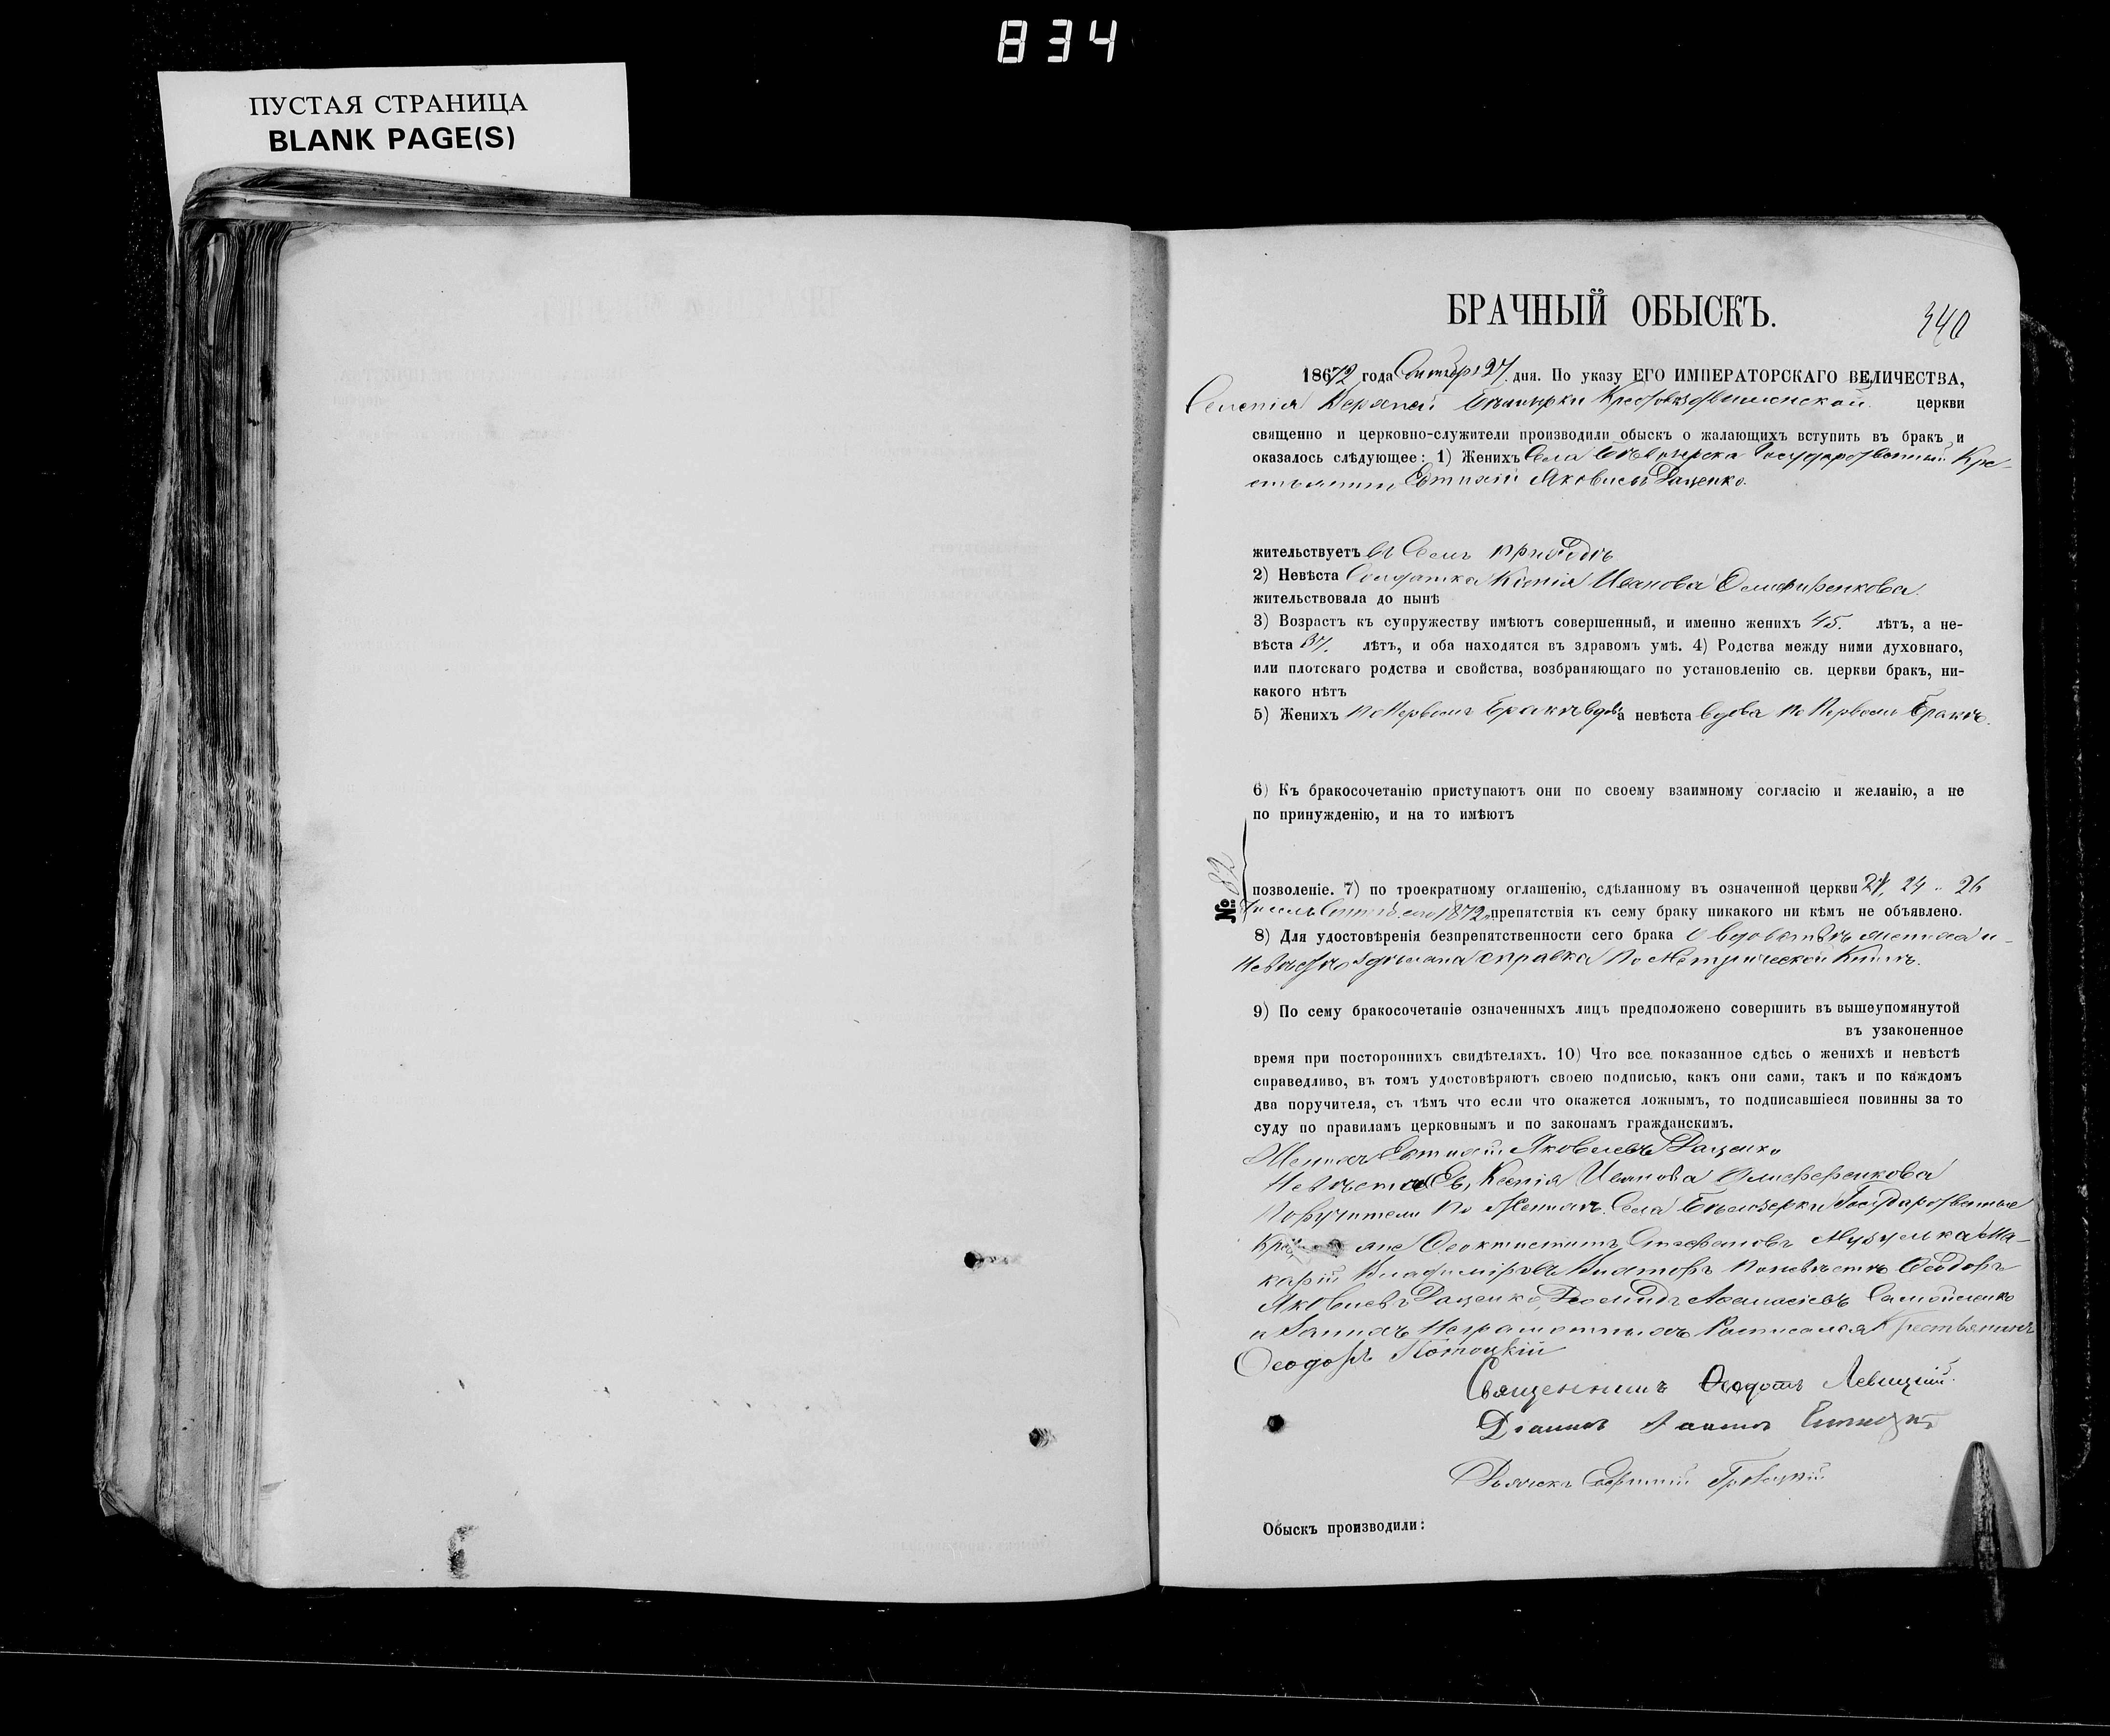 834
ПУСТАЯ СТРАНИЦА
BLANK PAGE(S)
БРАЧНЫЙ ОБЫСКЪ.
340
1872 года Октября 27. дня. По указу ЕГО ИМПЕРАТОРСКАГО ВЕЛИЧЕСТВА,
Крестовоздвиженской церкви
священно и церковно-служители производили обыскъ о жалающихъ вступить въ бракъ и
оказалось слѣдующее: 1) Женихъ Села Бѣлозерки Государственный Кре-
стьянинъ Евтихій Яковлевъ Даценко.
жительствуетъ въ семъ приходѣ
2) Невѣста Солдатка Ксенія Иванова Олиференкова.
жительствовала до нынѣ
3) Возрастъ къ супружеству имѣютъ совершенный, и именно женихъ 45. лѣтъ, а не-
вѣста 37. лѣтъ, и оба находятся въ здравомъ умѣ. 4) Родства между ними духовнаго,
или плотскаго родства и свойства, возбраняющаго по установленію св. церкви бракъ, ни-
какого нѣтъ
5) Женихъ по первомъ бракѣ вдовъ а невѣста вдова по первомъ бракѣ.
6) Къ бракосочетанію приступаютъ они по своему взаимному согласію и желанію, а не
по принужденію, и на то имѣютъ
№ 82
позволеніе. 7) по троекратному оглашенію, сдѣланному въ означенной церкви 24, 26
1872 препятствія къ сему браку никакого ни кѣмъ не объявлено.
8) Для удостовѣренія безпрепятственности сего брака о вдовствѣ жениха и
невѣсты сдѣлана справка по Метрической Книгѣ.
9) По сему бракосочетаніе означенныхъ лицъ предположено совершить въ вышеупомянутой
въ узаконенное
время при постороннихъ свидѣтеляхъ. 10) Что все показанное сдѣсь о женихѣ и невѣстѣ
справедливо, въ томъ удостовѣряютъ своею подписью, какъ они сами, такъ и по каждомъ
два поручителя, съ тѣмъ что если что окажется ложнымъ, то подписавшіеся повинны за то
суду по правиламъ церковнымъ и по законамъ гражданскимъ.
Женихъ Евтихій Яковлевъ Даценко
Невѣста Ксенія Иванова Олиференкова
Поручители по женихѣ Села Бѣлозерки Государственные
Феоктистъ Стефановъ Ма-
карій Владиміровъ по невѣстѣ Феодоръ
Яковлевъ Даценко, Афанасіевъ Самойленко
а за нихъ неграмотныхъ росписался Крестьянинъ
Феодоръ Потоцкій
Священникъ Феодотъ Левицкій.
Дьячекъ Евфимій
Обыскъ производили: